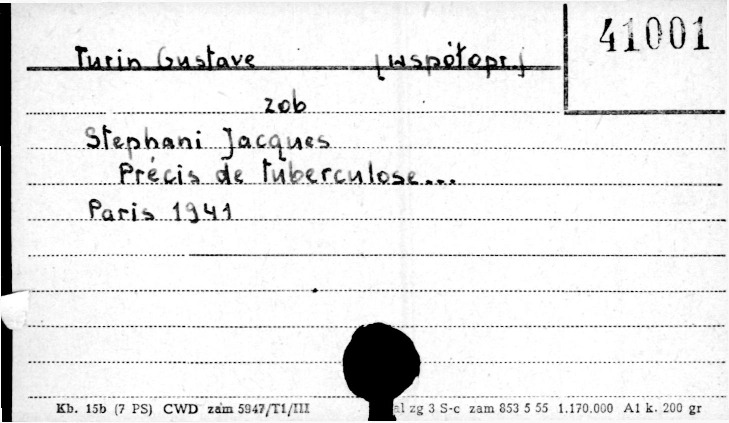 41001
Turin Gustave (współopr.)
zob
Stephani Jacques
Précis de tuberculose...
Paris 1941
Kb. 15b (7 PS) CWD zam 5947/T1/III zg 3 S-c zam 853 5 55 1.170.000 A1 k. 200 gr